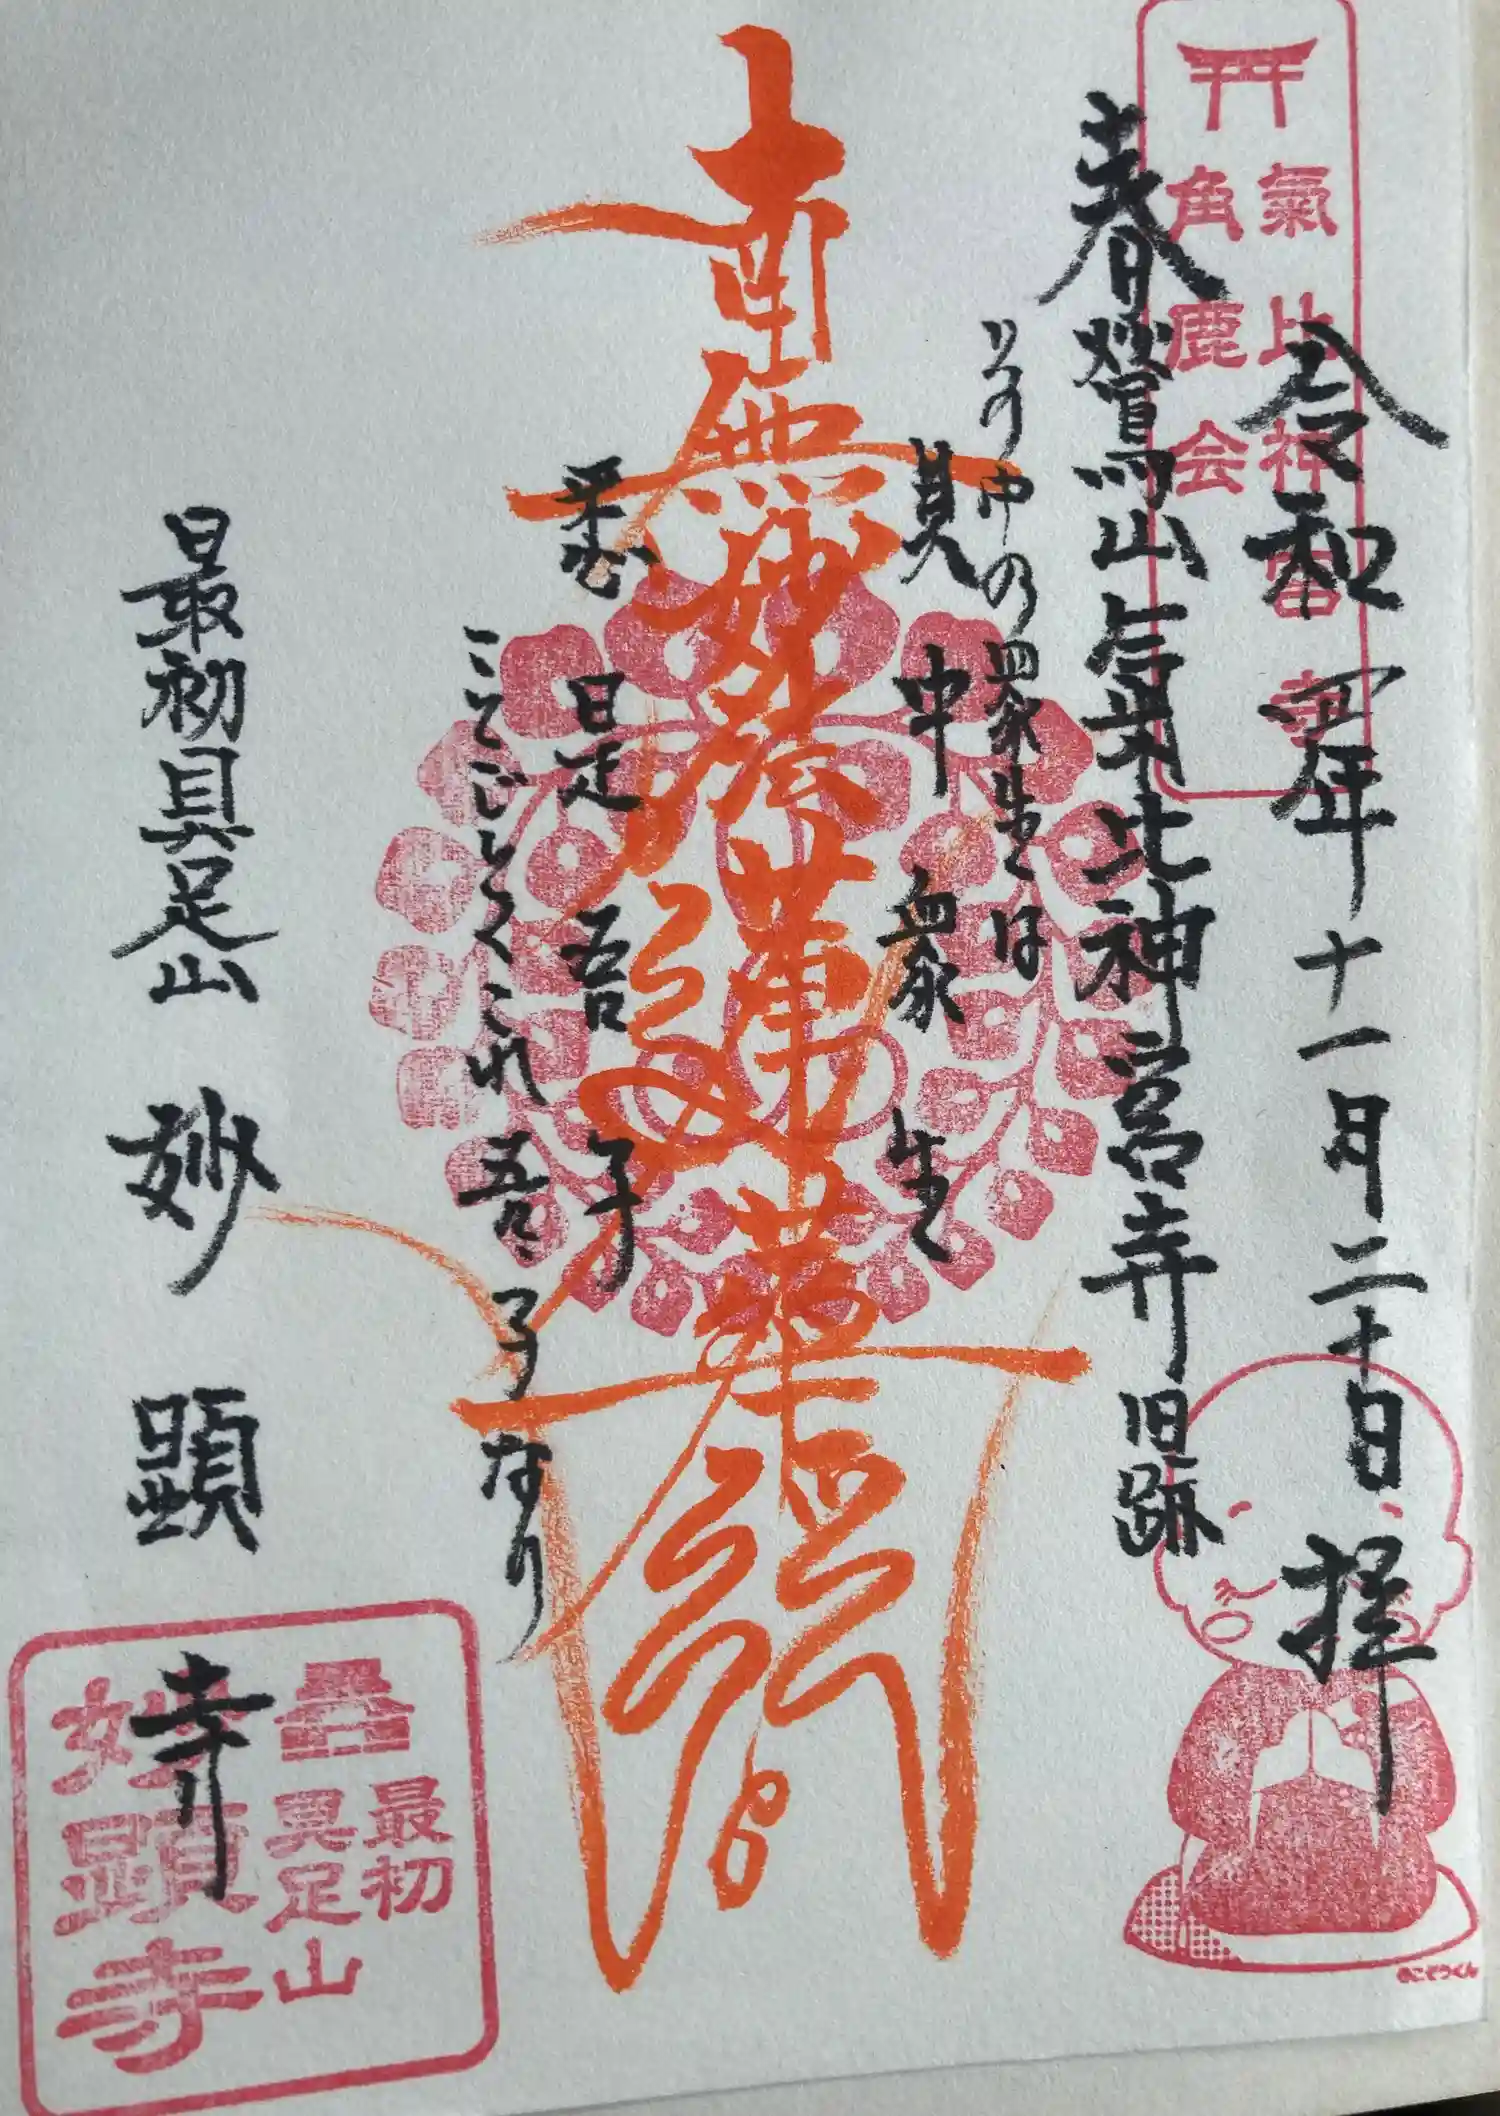 氣比神宮寺
角鹿会
令和四年十一月二十日 拝
春鶯山氣比神宮寺旧跡
その中の衆生は
其中衆生
南無妙法蓮華経
悉是吾子
ことごとくこれ吾が子なり
最初具足山 妙顕寺
最初
具足山
妙顕寺
©こぞうくん